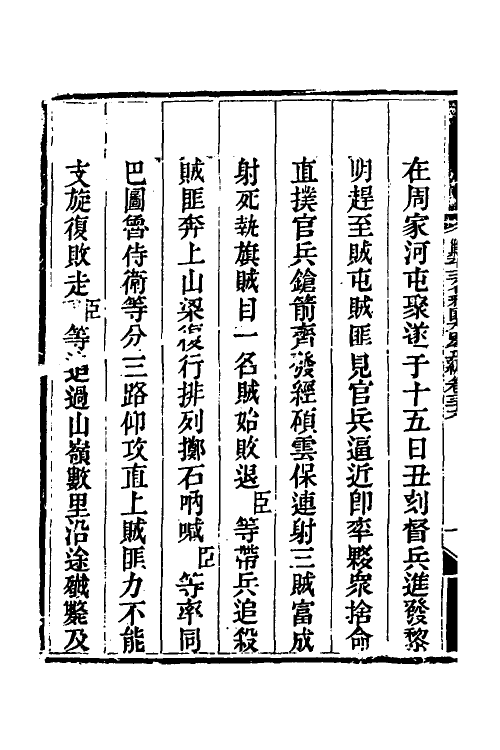 在周家河屯聚遂于十五日丑刻督兵進發黎
明趕至賊屯賊匪見官兵逼近卽率夥衆捨命
直撲官兵鎗箭齊發經碩雲保連射三賊富成
射死執旗賊目一名賊始敗退臣等帶兵追殺
賊匪奔上山梁復行排列擲石吶喊臣等率同
巴圖魯侍衛等分三路仰攻直上賊匪力不能
支旋復敗走臣等追過山嶺數里沿途殲斃及